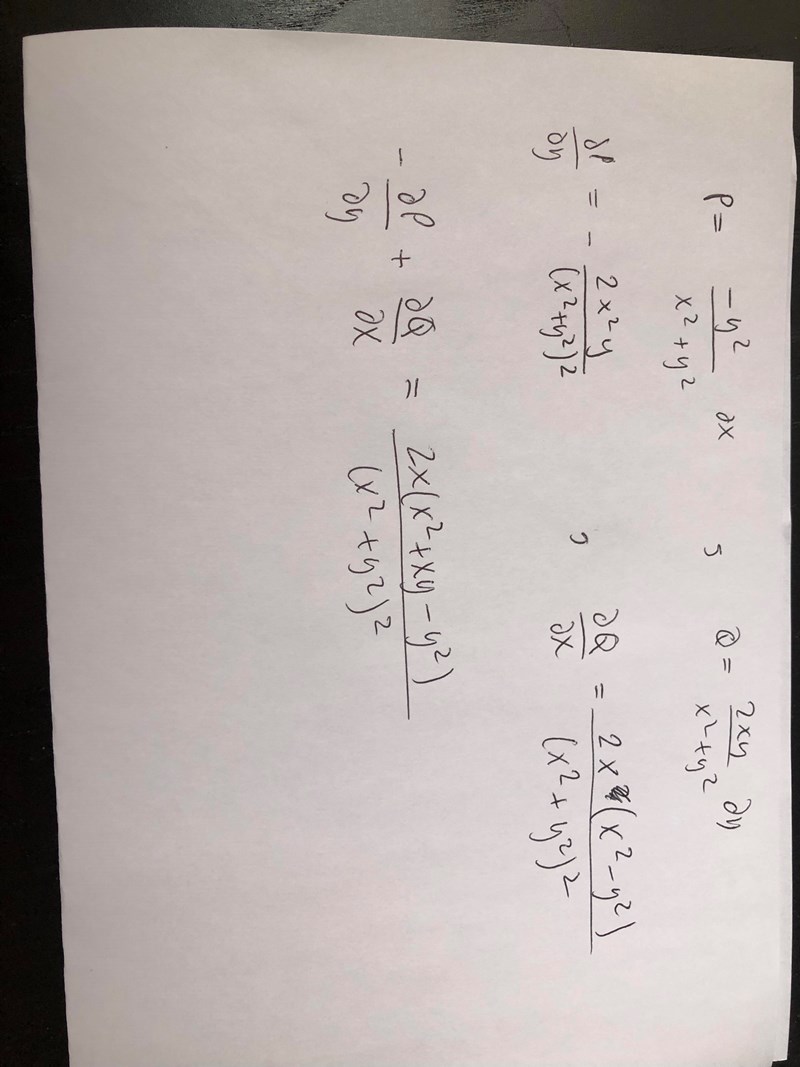 P = -y²/(x² + y²) ∂x , Q = 2xy/(x² + y²) ∂y
∂P/∂y = - 2x²y/(x² + y²)² , ∂Q/∂x = 2x(x² - y²)/(x² + y²)²
- ∂P/∂y + ∂Q/∂x = 2x(x² + xy - y²)/(x² + y²)²